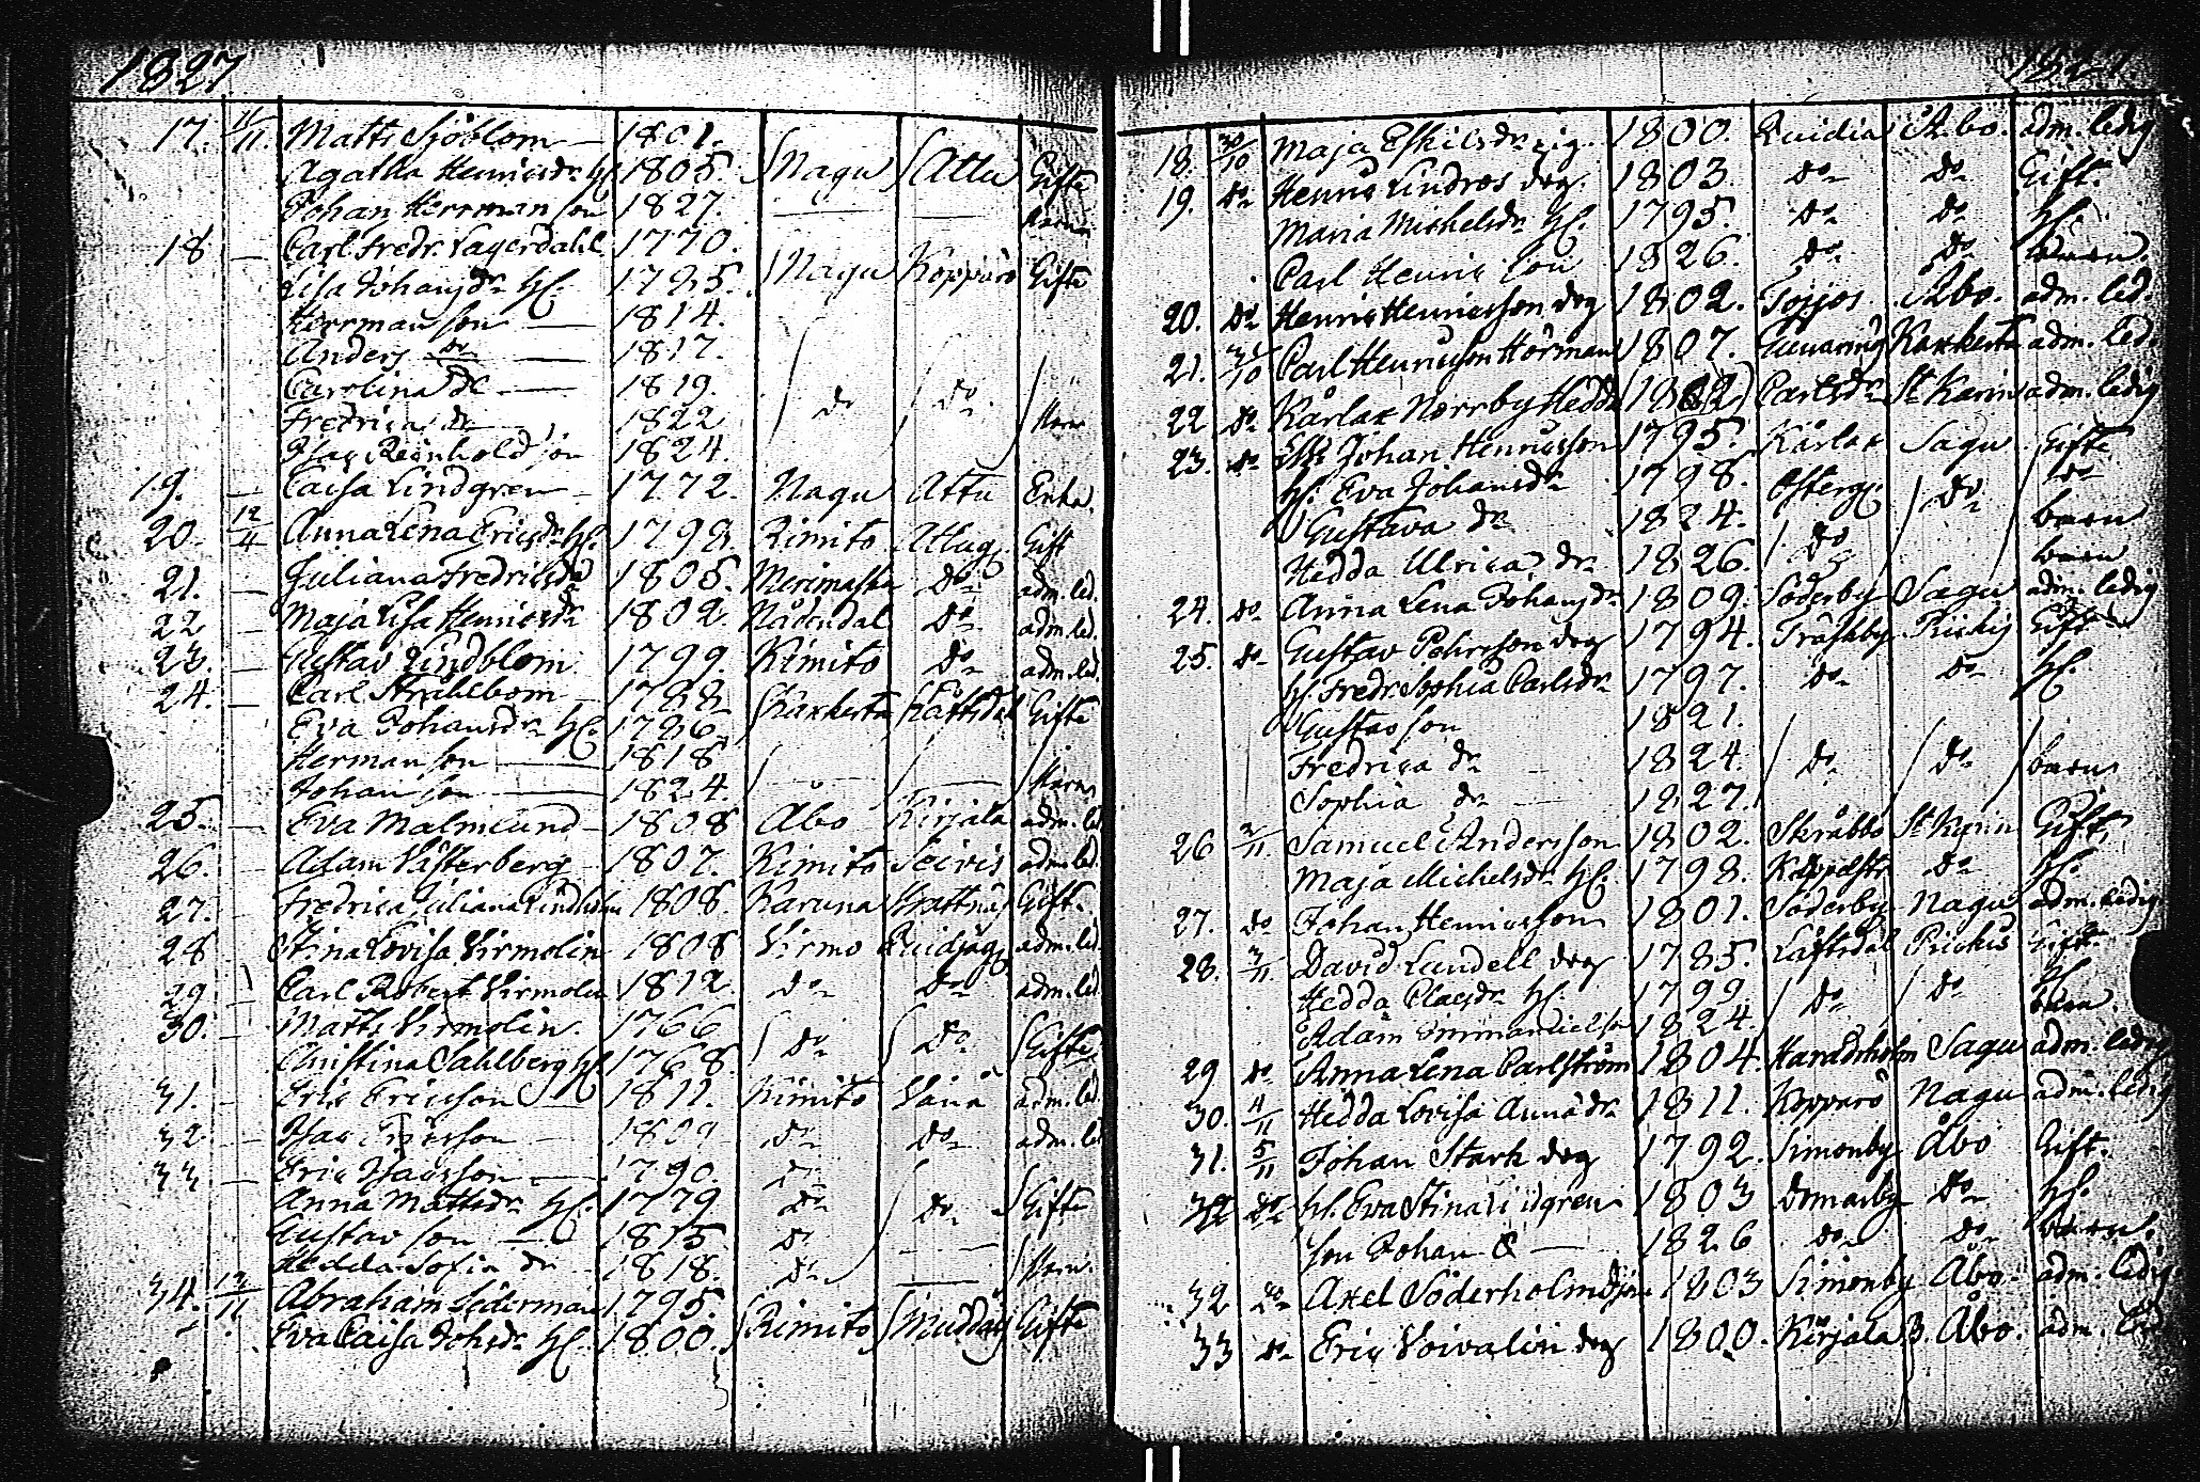 1827
17. 11/11. Matts Sjöblom — 1801.
Agatha Henricsdr hf 1805. Nagu Attu Gifte
Johan Herrman son 1827. Barn
18 — Carl Fredr. Lagerdahl 1770.
Lisa Johansdr hf. 1785. Nagu Koppars Gifte
Herrman son — 1814.
Anders do — 1817.
Carolina dr — 1819.
Fredrica dr — 1822 do do Barn
Isac Reinhold son 1824.
19. — Caisa Lindgren — 1772. Nagu Attu Enka.
20. 12/4 Anna Lena Ericsdr hf. 1798. Kimito Attug Gift
21. — Juliana Fredricsdr 1805. Merimasku do adm. led.
22 — Maja Lisa Henricsdr 1802. Nådendal do adm. led.
23. — Gustav Lindblom 1799. Kimito do adm. led.
24. — Carl Stråhlbom 1788
Eva Johansdr hf. 1786 Karkerta Låftsdal Gifte
Herman son — 1818
Johan son — 1824. Barn
25. — Eva Malmlund — 1808 Åbo Kirjala adm. led
26. — Adam Vesterberg 1807. Kimito adm. led.
27. — Fredrica Juliana Lindholm 1808. Karuna Gift.
28 — Stina Lovisa Virmolin 1808 Virmo adm. led.
29 — Carl Robert Virmolin 1812. do do adm. led.
30. — Matts Virmolin. 1766
Christina Sahlberg hf 1768. do do Gifte
31. — Eric Ericsson — 1811. Kimito Vänå adm. led.
32 — Isac Ericsson — 1809 do do adm. led
33 — Eric Isacsson — 1790. do
Anna Mattsdr hf. 1779 do do Gifte
Gustav son — 1815 do
Hedda Sofia dr 1818. do Barn.
34. Abraham Söderman 1795.
Eva Caisa Johsdr hf. 1800. Kimito Muddais Gifte
1827.
18. 30/10 Maja Eskilsdr pig. 1800. Quidia Åbo. adm. ledig
19. do Henric Lindros drg. 1803. do do Gift.
Maria Michelsdr hf. 1795. do do hf.
Carl Henric son 1826. do do barn.
20. do Henric Henricsson drg 1802. Åbo. adm. led.
21. 31/10 Carl Henricsson Hörman 1807. Gunnarnäs Karkerta adm. led.
22 do Kårlax Norrby Hedda 1802 Carlsdr St Karin adm. ledig
23. do Johan Henricsson 1795. Kårlax Sagu Gifte
hf. Eva Johansdr 1798. Österg. do do
Gustava dr 1824. barn
Hedda Ulrica dr 1826. do barn
24. do Anna Lena Johansdr 1809. Söderby Sagu adm. ledig
25. do Gustav Pehrsson drg 1794. Träskby Pickis Gift
hf. Fredr. Sophia Carlsdr 1797. do do hf.
Gustav son 1821.
Fredrica dr 1824. do do barn
Sophia dr — 1827.
26 2/11. Samuel Andersson 1802. Skräbbö St Karin Gift.
Maja Michelsdr hf. 1798. do hf.
27. do Johan Henricsson 1801. Söderby Nagu adm. ledig
28. 3/11 David Lundell drg 1785. Låftsdal Pickis Gift.
Hedda Claesdr hf. 1799. do do hf
Adam Emmanuel son 1824. barn.
29 do Anna Lena Carlström 1804. Haradsholm Sagu adm. ledig
30. 4/11 Hedda Lovisa Annædr 1811. Kopparö Nagu adm. ledig
31. 5/11 Johan Stark drg 1792. Simonby Åbo Gift.
32 do hf. Eva Stina Lidgren 1803 Domarby do hf.
son Johan — 1826 do do barn.
32 do Axel Söderholm 1803 Simonby Åbo. adm. ledig
33 do Eric Voivalin drg 1800. Kirjala B. Åbo. adm. led